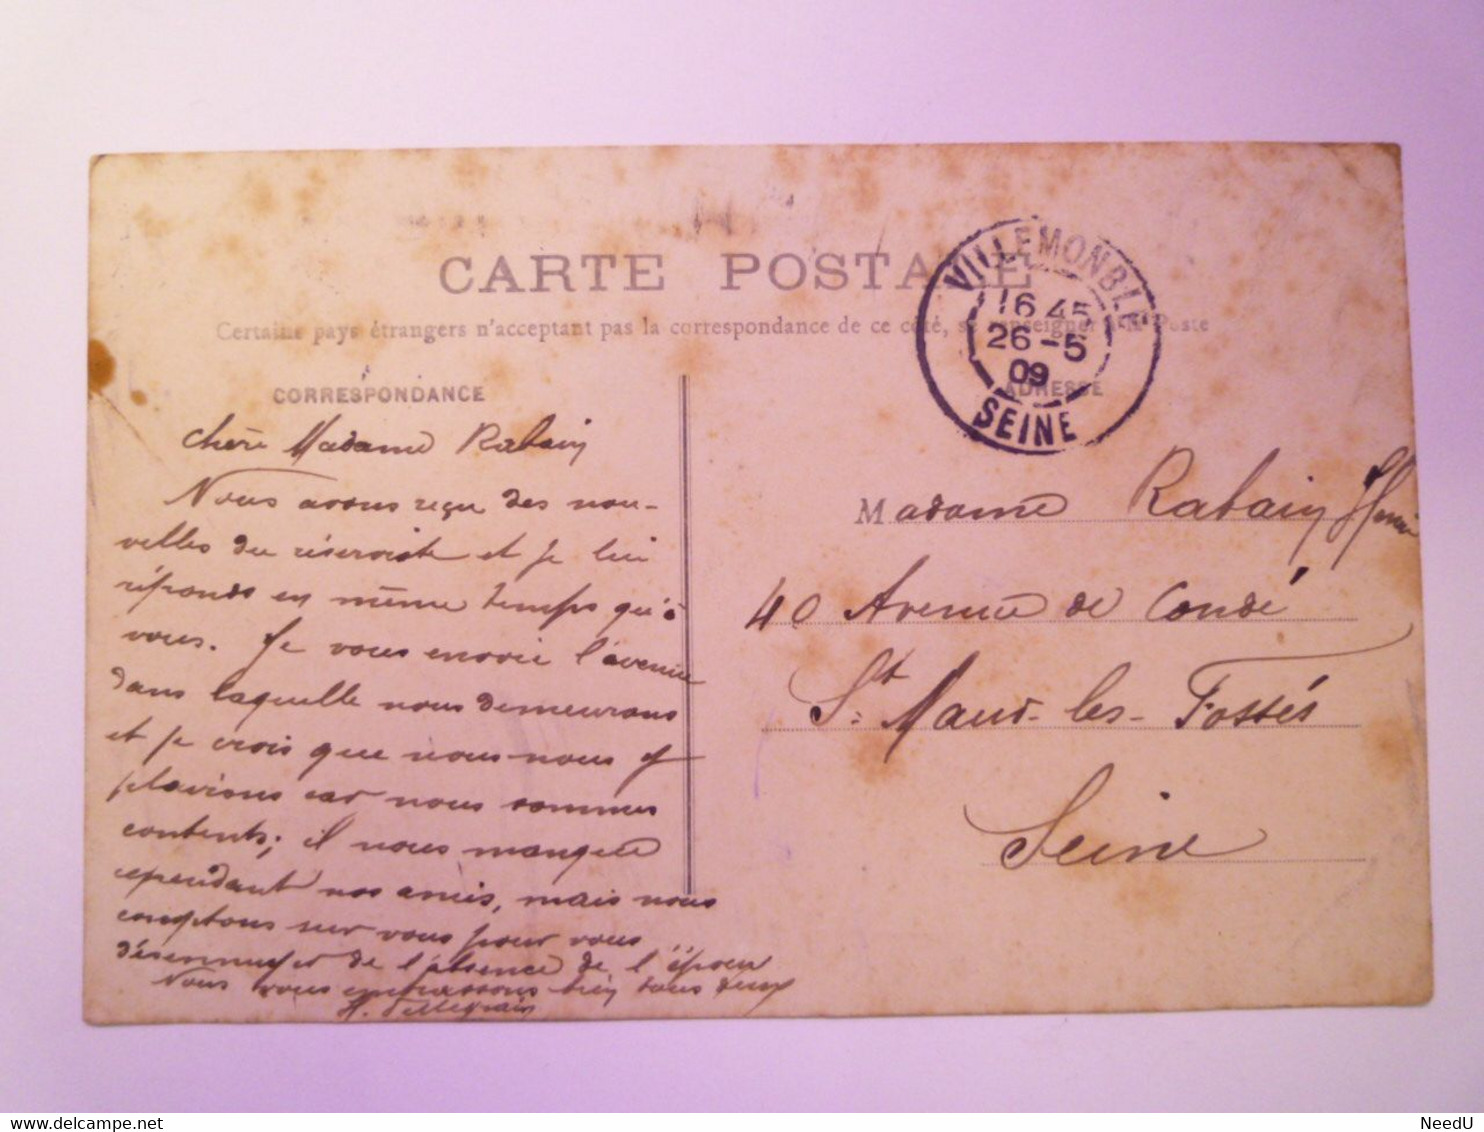 CARTE POSTALE
Certains pays étrangers n'acceptant pas la correspondance de ce côté, se renseigner à la Poste
VILLEMOMBLE
16 45
26 - 5
09
SEINE
CORRESPONDANCE
ADRESSE
Chère Madame Rabain
Nous avons reçu des nou-
velles du réserviste et je lui
réponds en même temps qu'à
vous. Je vous envoie l'avenue
dans laquelle nous demeurons
et je crois que nous nous y
plairons car nous sommes
contents; il nous manque
cependant nos amis, mais nous
comptons sur vous pour vous
désennuyer de l'absence de l'époux
Nous vous embrassons bien tous deux
Madame Rabain Henri
40 Avenue de Condé
St. Maur-les-Fossés
Seine
NeedU